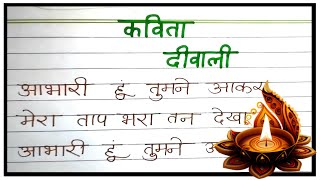 कविता
दीवाली
आभारी हूं तुमने आकर
मेरा ताप भरा तन देखा
आभारी हूं तुमने